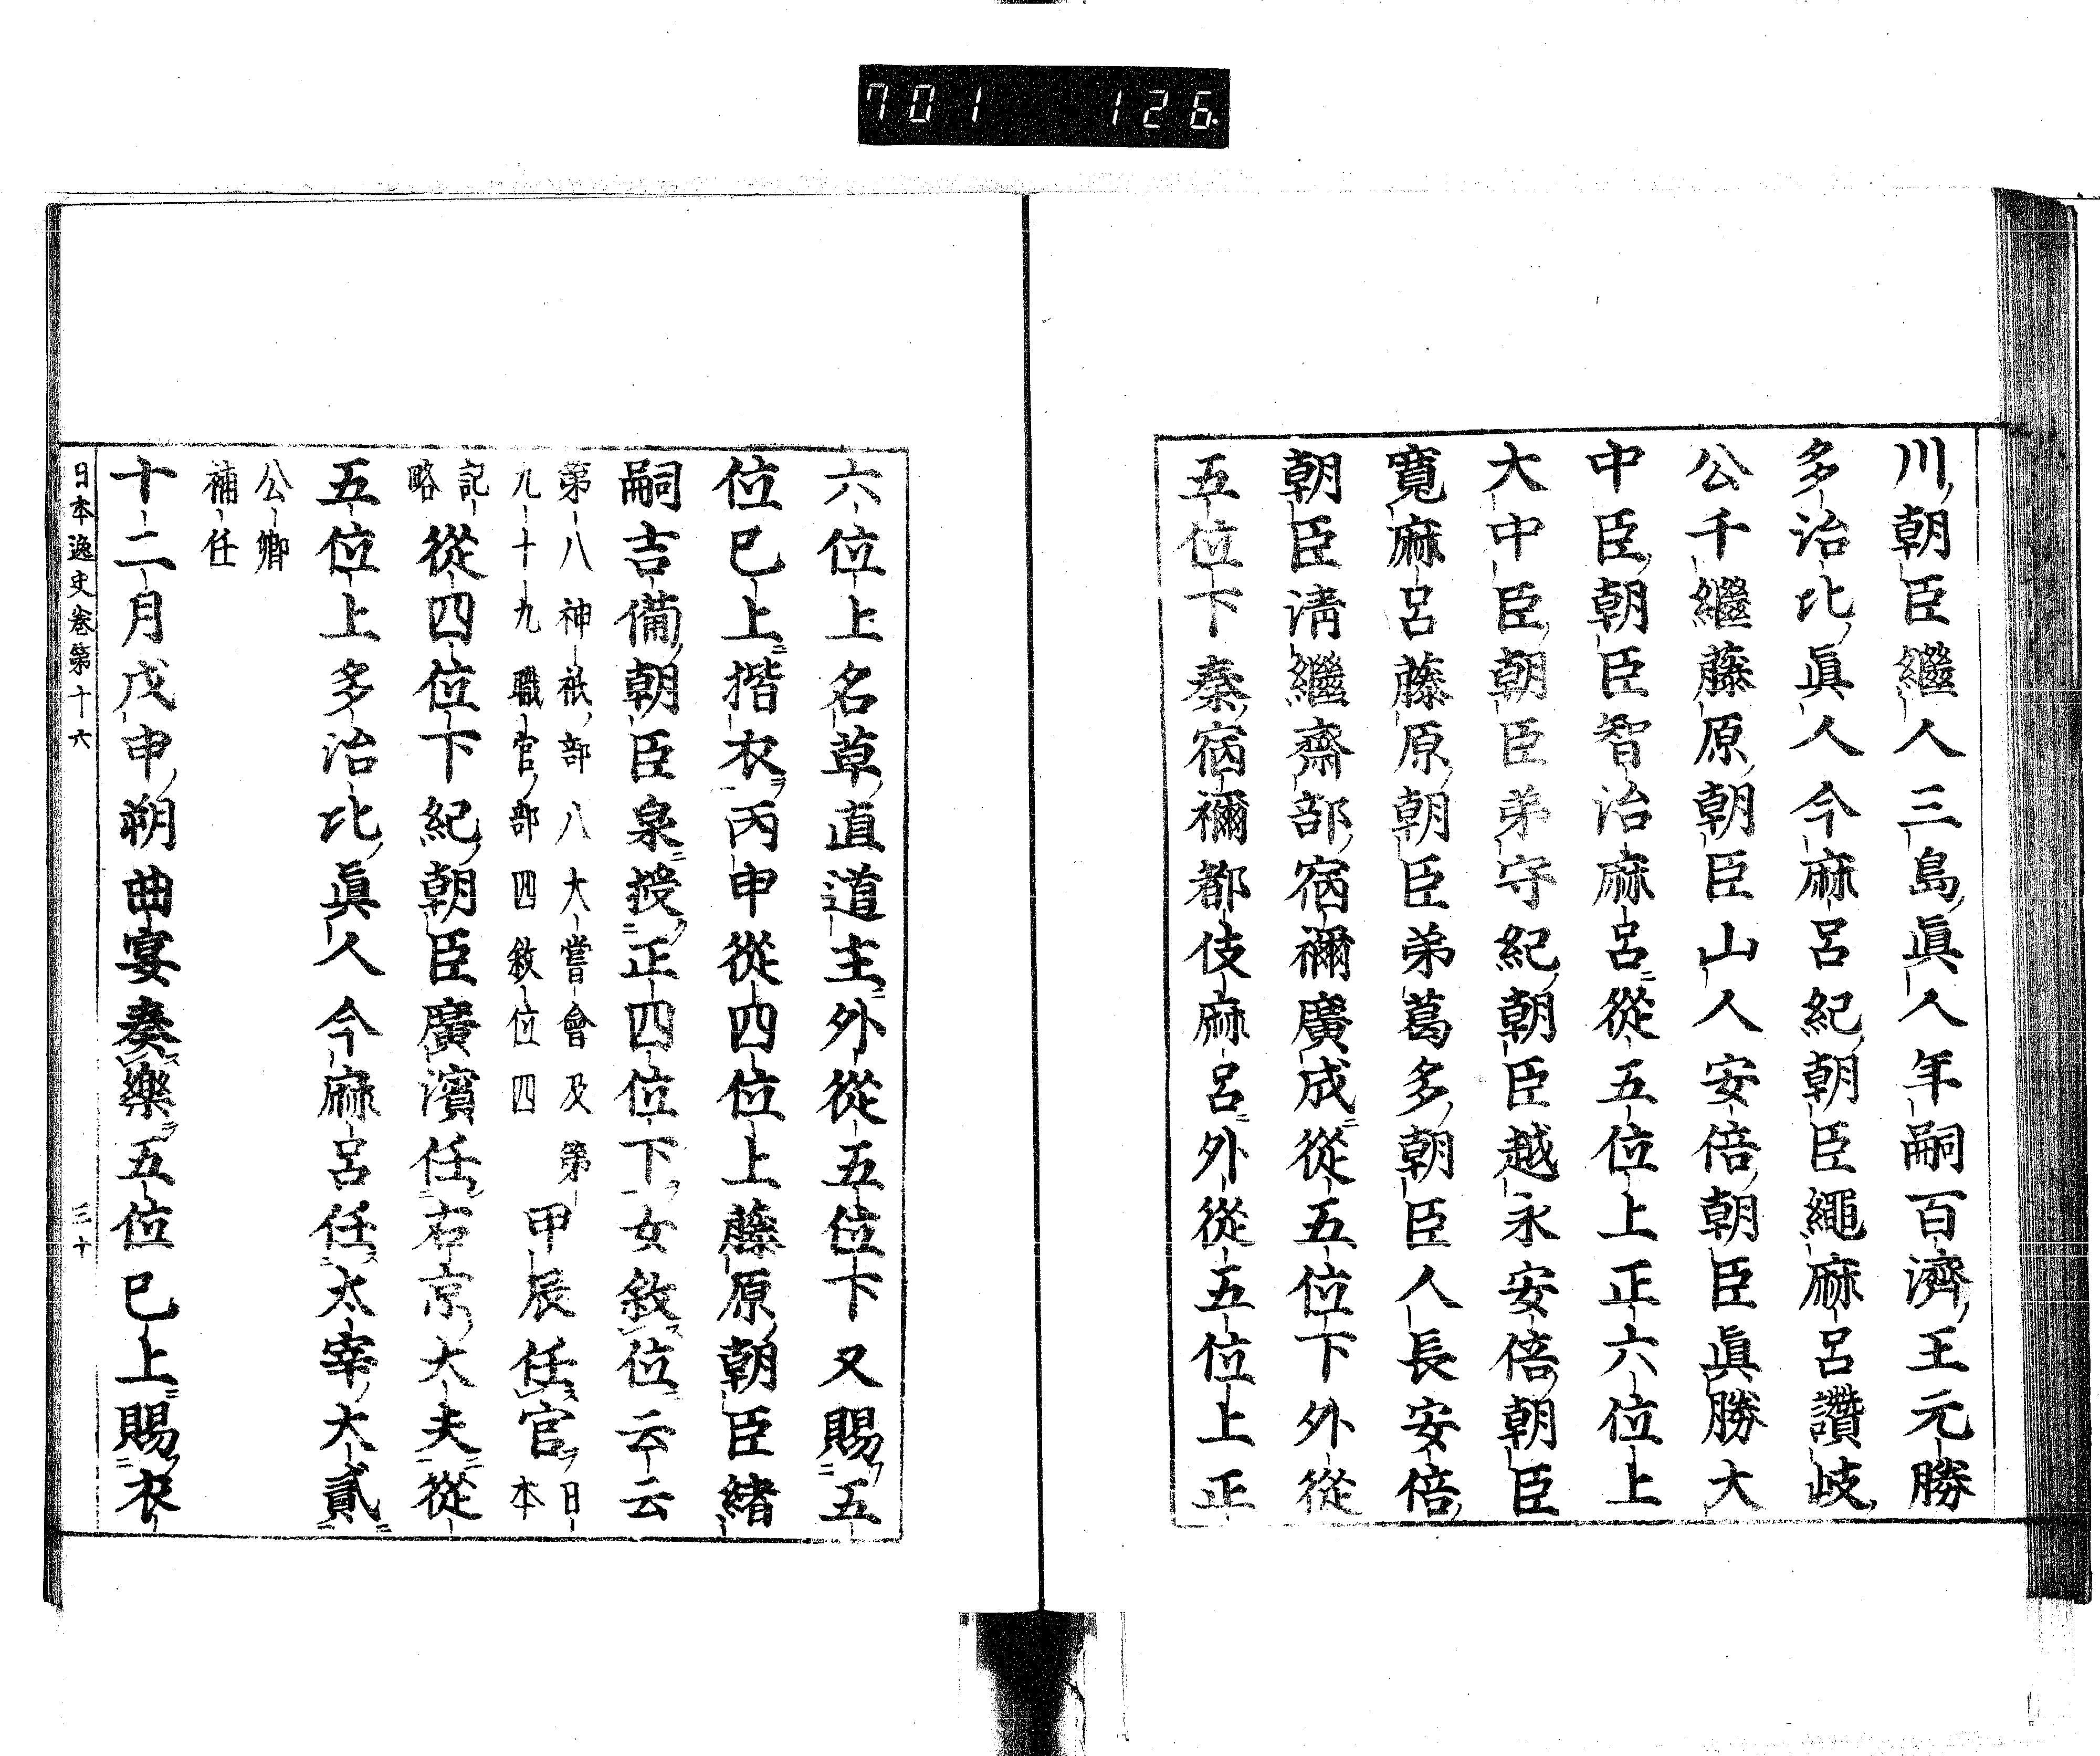 701 126
川朝臣繼人三島眞人年嗣百濟王元勝
多治比眞人今麻呂紀朝臣繩麻呂讚岐
公千繼藤原朝臣山人安倍朝臣眞勝大
中臣朝臣智治麻呂從五位上正六位上
大中臣朝臣弟守紀朝臣越永安倍朝臣
寬麻呂藤原朝臣弟葛多朝臣人長安倍
朝臣淸繼齋部宿禰廣成從五位下外從
五位下秦宿禰都伎麻呂外從五位上正
六位上名草直道主外從五位下又賜五
位已上揩衣丙申從四位上藤原朝臣緖
嗣吉備朝臣泉授正四位下女敘位云云
第八神祇部八大嘗會及第
九十九職官部四敘位四
甲辰任官
日
本
記
略
從四位下紀朝臣廣濱任右京大夫從
五位上多治比眞人今麻呂任太宰大貳
公卿
補任
十二月戊申朔曲宴奏樂五位已上賜衣
日本逸史卷第十六 三十